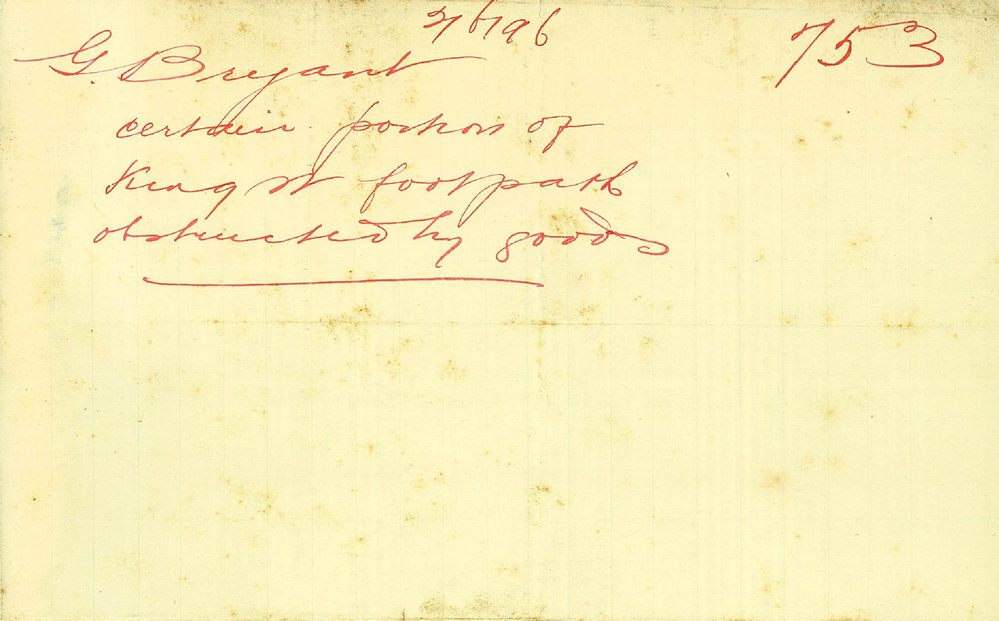 2/6/96
753
G. Bryant
certain portion of
King St footpath
obstructed by goods